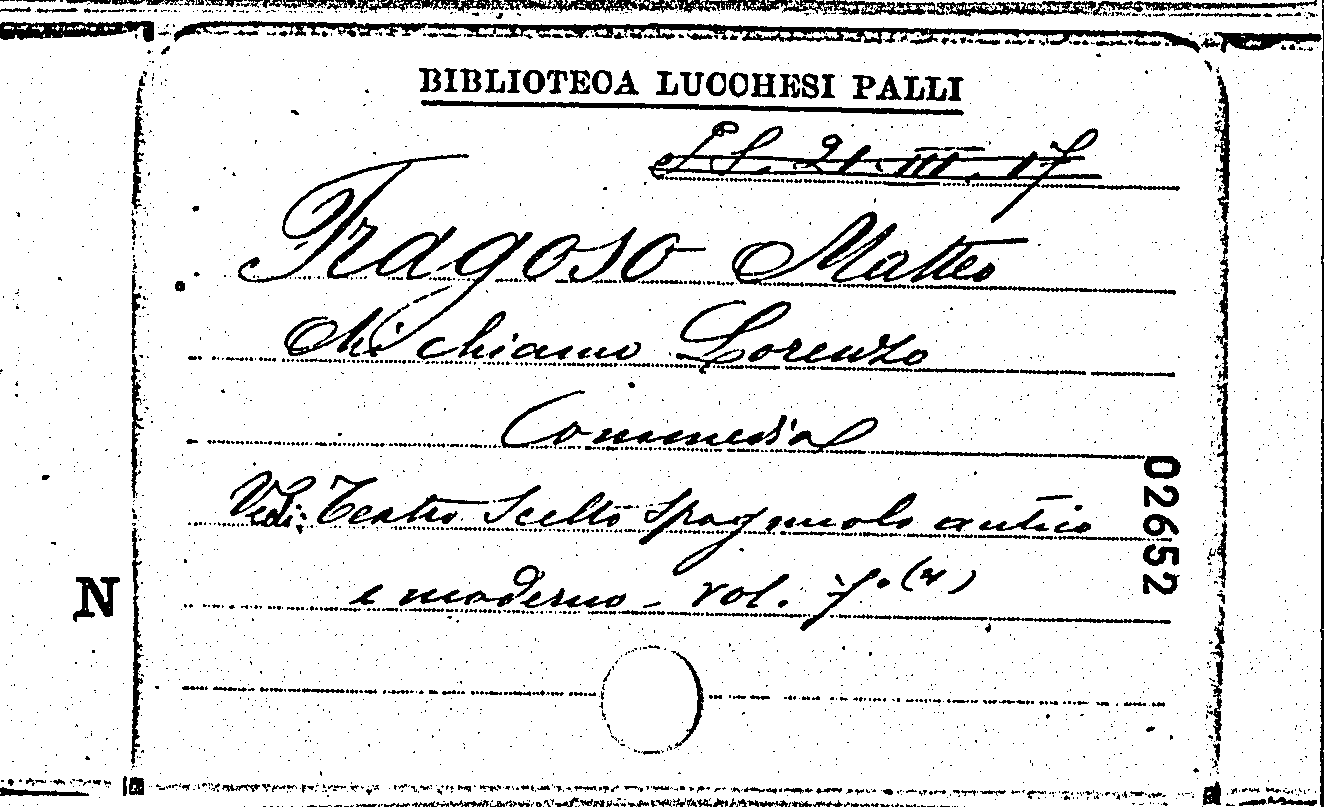 BIBLIOTECA LUCCHESI PALLI
L.S. 21. III. 17
Fragoso Matteo
Mi chiamo Lorenzo
Commedia
Vedi: Teatro Scelto Spagnuolo antico
e moderno - vol. 7º (4)
02652
N